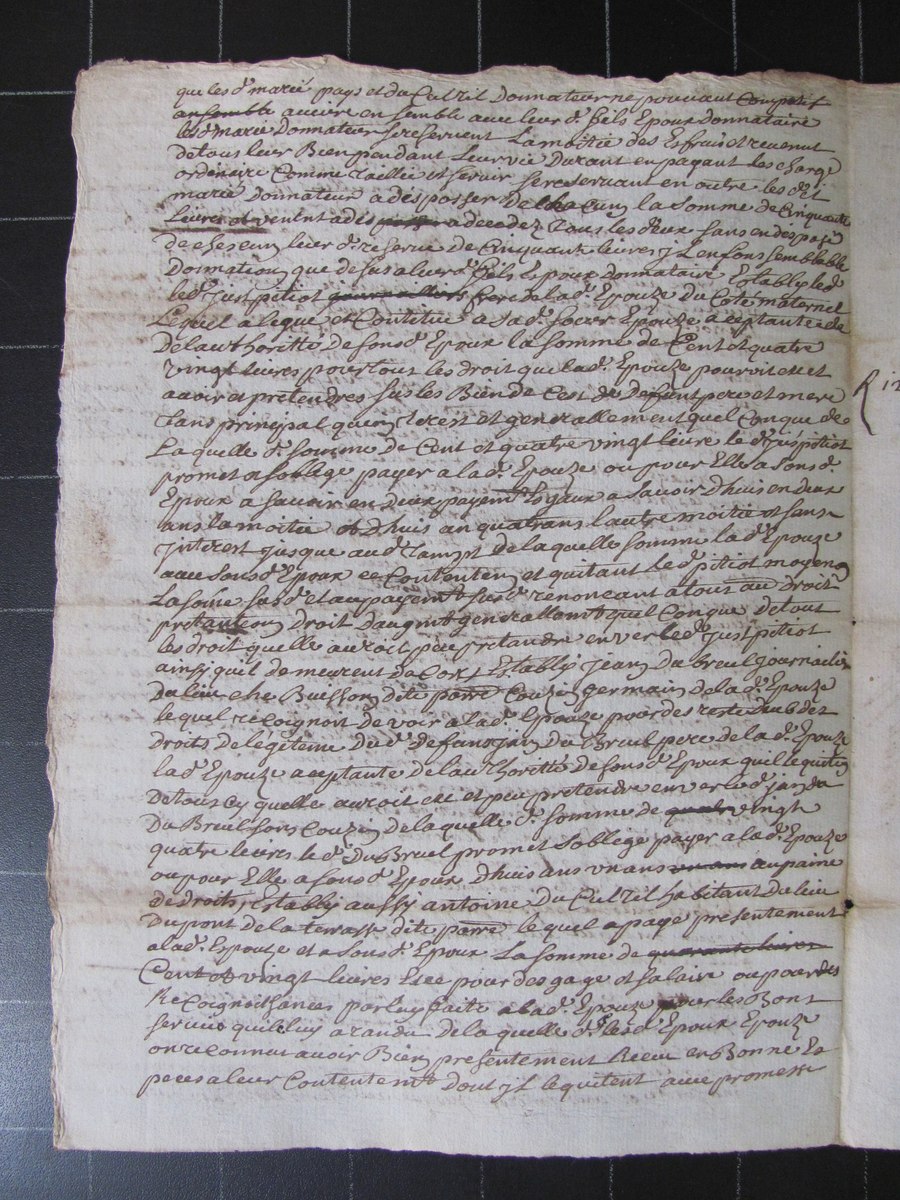 que les d. marié pays et du Cutzil Donnateur ne pouvant Compatif
ansemble auvire ensemble avec leur d. fils Epoux donnataire
les d. marié Donnateur se reservent La moitié des Esfruis et revenut
de tous leur Bien pendant Leur vie Durant en payant les charge
ordinaire Comme Taillie et servir se reservant en outre les dit
marié Donnateur a desposser de Chacun la somme de Cinquante
Livres et venent a des a decedez Tous les deux sans en desposé
de cheseun leur d. reserve de Cinquante livres jl en fons semblable
Donnation que desus a leur d. fils Epoux donnataire Establÿ led.
led. just pitiot journallier frere de la d. Epouze du Coté maternel
Lequel a legue et Contitue a sa d. soeur Epouze aceptante et de
De lauthoritté de son d. Epoux la somme de Cent et quatre
vingt livres pour tout les droit que la d. Epouze pourvit et
avoir et pretendres sus les Bien de defunt pere et mere
Tans principal quen jnterest et generallement quel Conque de
La quelle d. somme de Cent et quatre vingt livre le d. jus pitiot
promet et soblige payer a la d. Epouze ou pour Elle a son d.
Epoux a savoir en deux payemt Egaux a savoir dhuis en deux
ans la moitie et dhuis an quatrans lautre moitié et sans
jnterest jusque aud. Tampt de la quelle somme la d. Epouze
avec son d. Epoux ce Contenten et quitant le d. pitiot moyen
La some sus d. et au payemt sus d. renonceant a tous au Droit
pretantion Droit daugmt generallemt quil Conque de tout
les droit quelle auroit peu pretandre enver le d. just pitiot
ainsy quil demeurent dacort Establÿ jean du breuil journallier
du lieu che Buisson dite parre Couzin germain de la d. Epouze
le quel recoignoit devoir a la d. Epouze pour des reste des
droits de légitime du d. defunt jan du Breuil pere de la d. Epouze
la d. Epouze aceptante de lauthoritté de son d. Epoux quil le quite
De tous cy quelle auroit ete et peu pretendre enver le d. jan du
Du Breul sont Couzin de la quelle d. somme de quatre vingt
quatre livres le d. Du Breul promet soblige payer a la d. Epouze
ou pour Elle a son d. Epoux dhuis ans un ans un ans a u paine
de droits, Establÿ aussy antoine du Cutzil habitant du lieu
Du pont de la terrasse dite parre le quel a paye presentement
a la d. Epouze et a son d. Epoux La somme de quarante livres
Cent et vingt livres pour des gage et salair ou pour des
Re Coignoissances par luy faite a la d. Epouze pour les Bont
service quil luy a randu de la quelle d. les d. Epoux Epouze
on reconnut avoir Bien presentement Receu en Bonne Es
peces a leur Contentemt Dont jl le quitent avec promesse
R